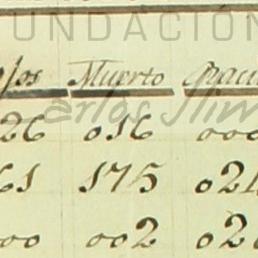 FUNDACIÓN
Muerto
Carlos Slim
26 016 000
61 175 02
00 002 02